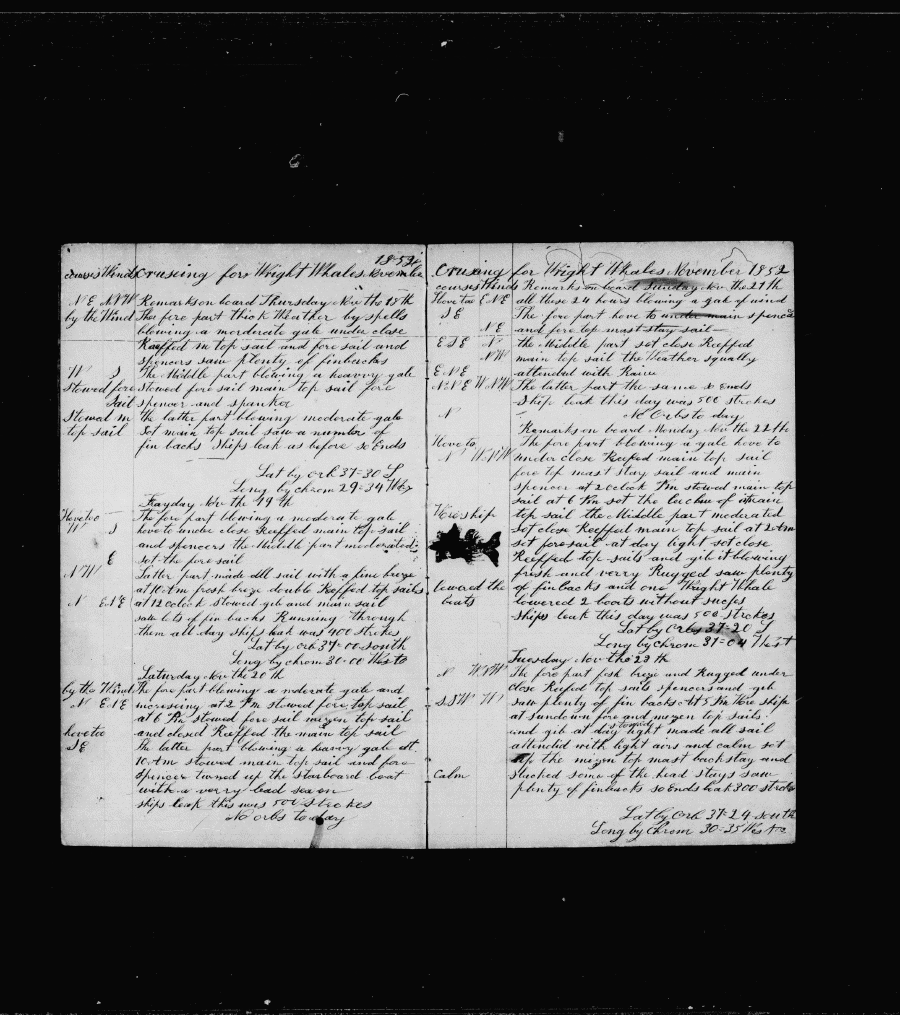 1852
courses Winds Cruseing for Wright Whales November
N E NNW Remarks on board Thursday Nov the 18th
by the Wind The fore part thick Weather by spells
blowing a morderate gale under close
Reeffed m top sail and fore sail and
spencers saw plenty of finbacks
W S The Middle part blowing a heavy gale
Stowed fore Stowed fore sail main top sail fore
Sail spencer and spanker
Stowed m the latter part blowing moderate gale
top sail Sot main top sail saw a number of
fin backs Ships leak as before so Ends
Lat by orb 37=30 S
Long by chrom 29=34 West
Frayday Nov the 19th
Hove too The fore part blowing a moderate gale
W S hove to under close Reeffed main top sail
and spencers the Middle part moderated
E sot the fore sail
N W Latter part made all sail with a fine breze
at 10 Am fresh breze double Reeffed top sails
N ENE at 12 oclock Stowed gib and main sail
saw lots of fin backs Running through
them all day ships leak was 400 strokes
Lat by orb 37=00 south
Long by chrom 30=00 West
Saturday Nov the 20th
by the Wind The fore part blowing a moderate gale and
N ENE increasing at 2 Pm stowed fore top sail
at 6 Pm stowed fore sail mizen top sail
hove too and closed Reeffed the main top sail
S E the latter part blowing a heavy gale at
10 Am stowed main top sail and fore
Spencer turned up the Starboard boat
with a verry bad sea on
ships leak this was 500 strokes
No orbs today
Cruseing for Wright Whales November 1852
courses Winds Remarks on board Sunday Nov the 21th
Hove too ENE all these 24 hours blowing a gale of wind
S E The fore part hove to under main spencer
N E and fore top mast stay sail
E S E N the Middle part sot close Reeffed
NW main top sail the Weather squally
E N E attended with Raine
N N E WNW The latter part the same so Ends
Ship leak this day was 500 strokes
N No Orbs to day
Remarks on board Monday Nov the 22th
Hove to The fore part blowing a gale hove to
N WNW under close Reeffed main top sail
fore top mast stay sail and main
spencer at 2 oclock Pm stowed main top
sail at 6 Pm sot the of main
Wore ship top sail the Middle part moderated
Sot close Reeffed main top sail at 2 Am
sot fore sail at day light sot close
Reeffed top sails and gib it blowing
fresh and verry Rugged saw plenty
lowered the of finbacks and one Wright Whale
boats lowered 2 boats without sucses
ships leak this day was 500 strokes
Lat by Orbs 37=20 S
Long by chrom 31=04 West
Tuesday Nov the 23th
N WNW The fore part fresh breze and Rugged under
close Reefed top sails spencers and gib
SSW W saw plenty of fin backs At 5 Pm Wore ship
at sundown fore and mizen top sails
stowed
and gib at day light made all sail
attended with light airs and calm sot
up the mizen top mast backstay and
Calm slacked some of the head stays saw
plenty of finbacks so Ends leak 300 strokes
Lat by Orb 37=24 south
Long by Chrom 30=35 West